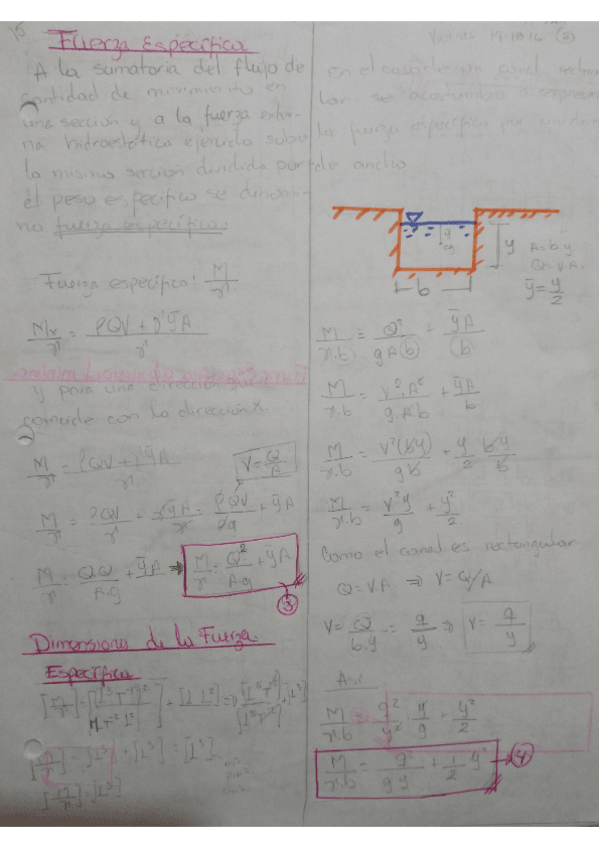 Fuerza Específica
A la sumatoria del flujo de
cantidad de movimiento en
una sección y a la fuerza exter-
na hidroestática ejercida sobre
la misma sección dividida por
el peso específico se denomi-
na fuerza específica.
Fuerza específica: M/γ
Mx/γ = ρQV + γȳA / γ
y para una dirección que
coincide con la dirección x.
M/γ = ρQV + γȳA / γ
V = Q/A
M/γ = ρQV/γ + γȳA/γ = ρQV/ρg + ȳA
M/γ = QQ/A.g + ȳA ⇒ M/γ = Q²/A.g + ȳA
③
Dimensions de la Fuerza
Específica
[M/γ] = [L³]
14-10-16 (2)
En el caso de un canal rectan
lar se acostumbra a expresar
la fuerza específica por unidad
de ancho
y
A = b.y.
Q = V.A.
ȳ = y/2
b
M/γ.b = Q²/gA(b) + ȳA/(b)
M/γ.b = V².A²/g.A.b + ȳA/b
M/γ.b = V²(by)/gb + y/2 by/b
M/γ.b = V²y/g + y²/2
Como el canal es rectangular
Q = VA ⇒ V = Q/A
V = Q/b.y = q/y ⇒ V = q/y
M/γ.b = q²/y² y/g + y²/2
M/γ.b = q²/gy + 1/2 y² → ④